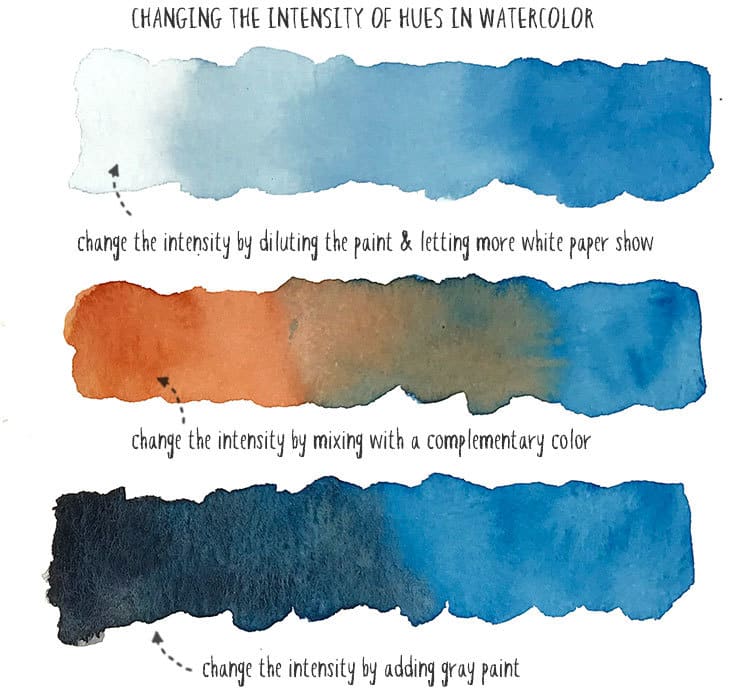 CHANGING THE INTENSITY OF HUES IN WATERCOLOR
change the intensity by diluting the paint & letting more white paper show
change the intensity by mixing with a complementary color
change the intensity by adding gray paint